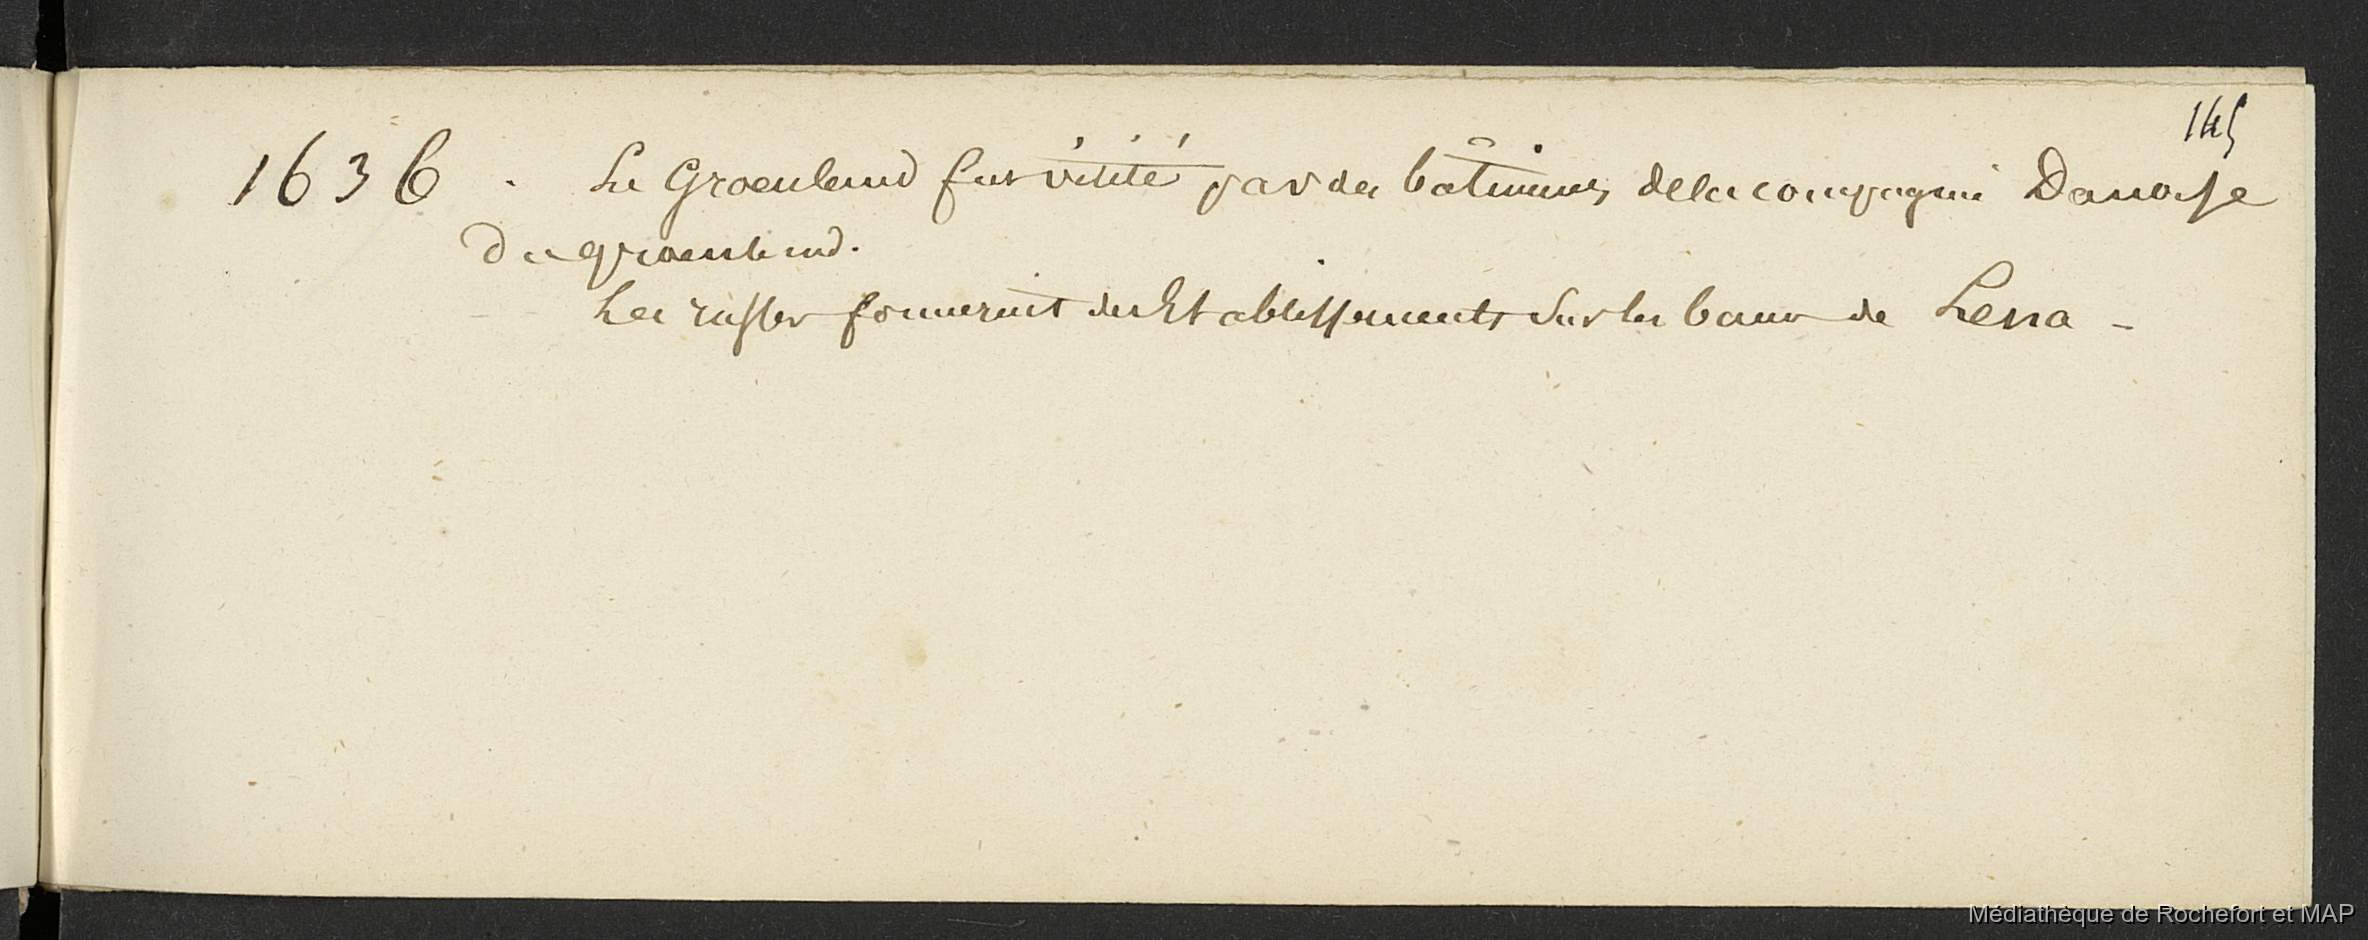 145
1636. Le Groenland fut visité par des bâtiments de la compagnie Danoise
du groenland.
Les russes formerent des Etablissements sur les bords de Lena -
Médiathèque de Rochefort et MAP